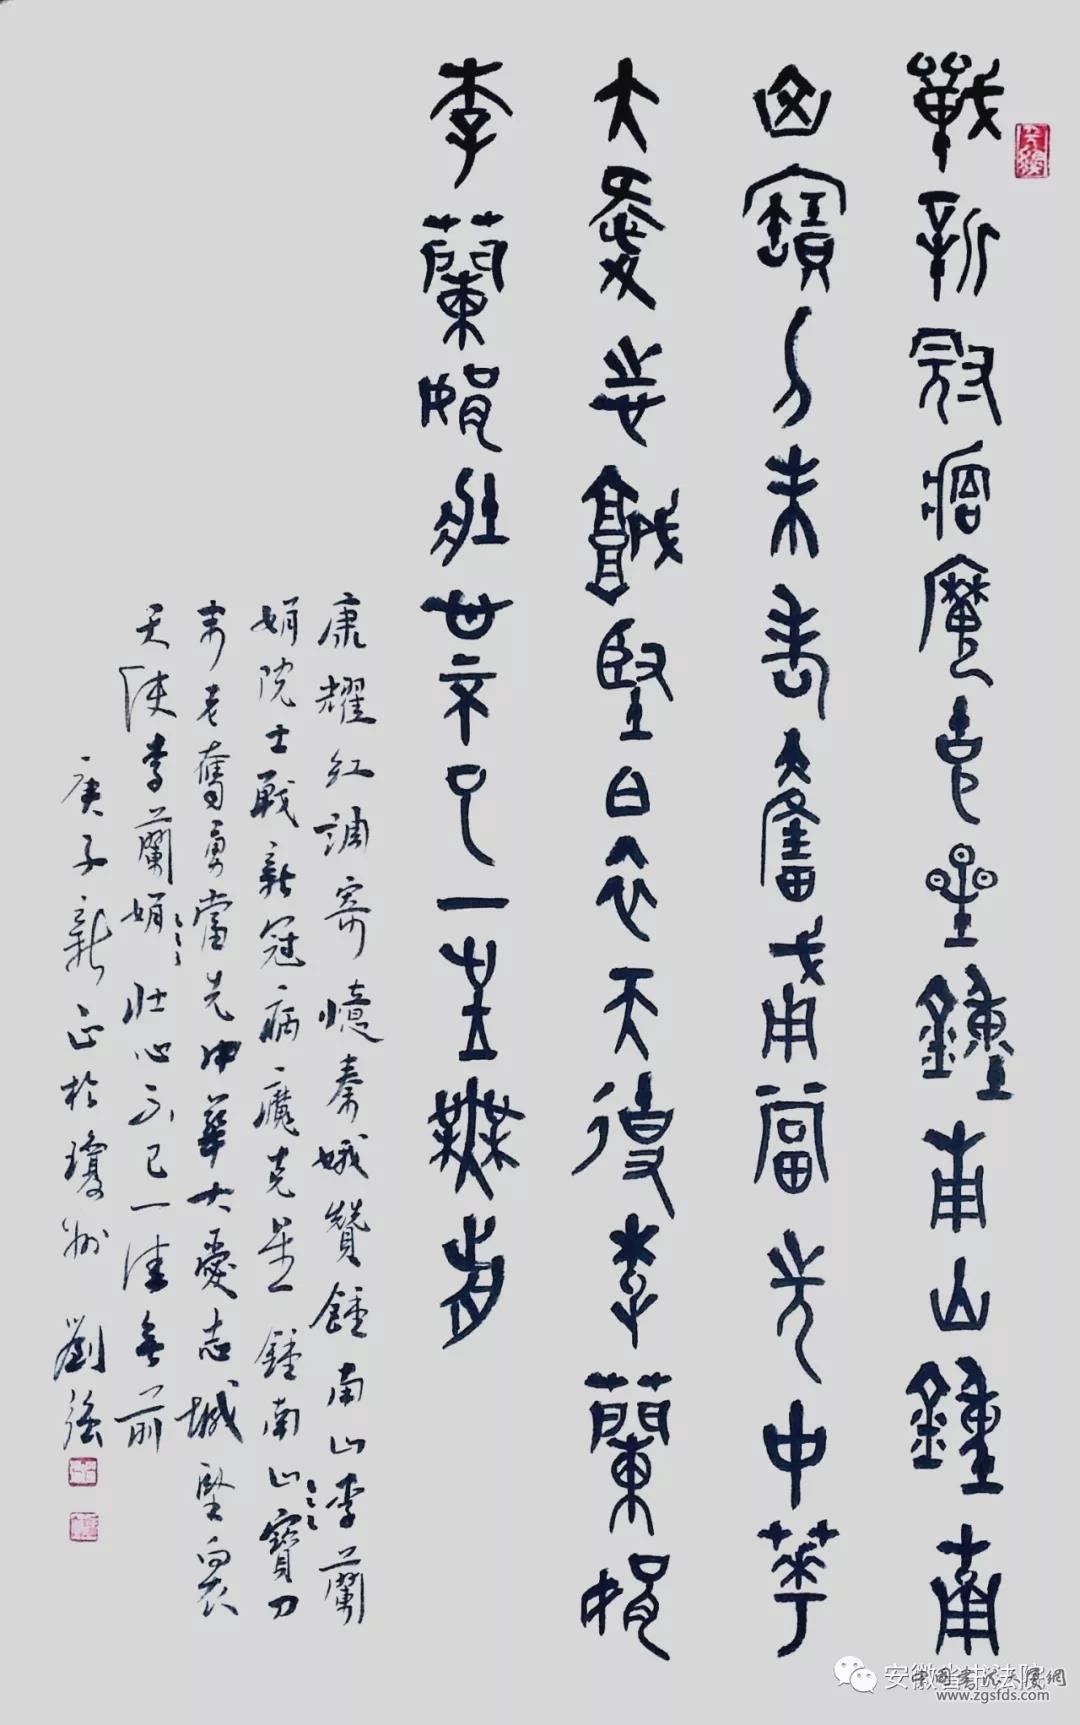 戰新冠病魔克星鍾南山鍾南
山寶刀未老奮勇當先中華
大愛志城堅白衣天使李蘭娟
李蘭娟壯心不已一往無前
康耀紅調寄憶秦娥贊鍾南山李蘭
娟院士戰新冠病魔克星鍾南山〻〻〻寶刀
未老奮勇當先中華大愛志城堅白衣
天使李蘭娟〻〻〻壯心不已一往無前
庚子新正於瓊州 劉強
安徽省书法院
中国书法大厦網
www.zgsfds.com